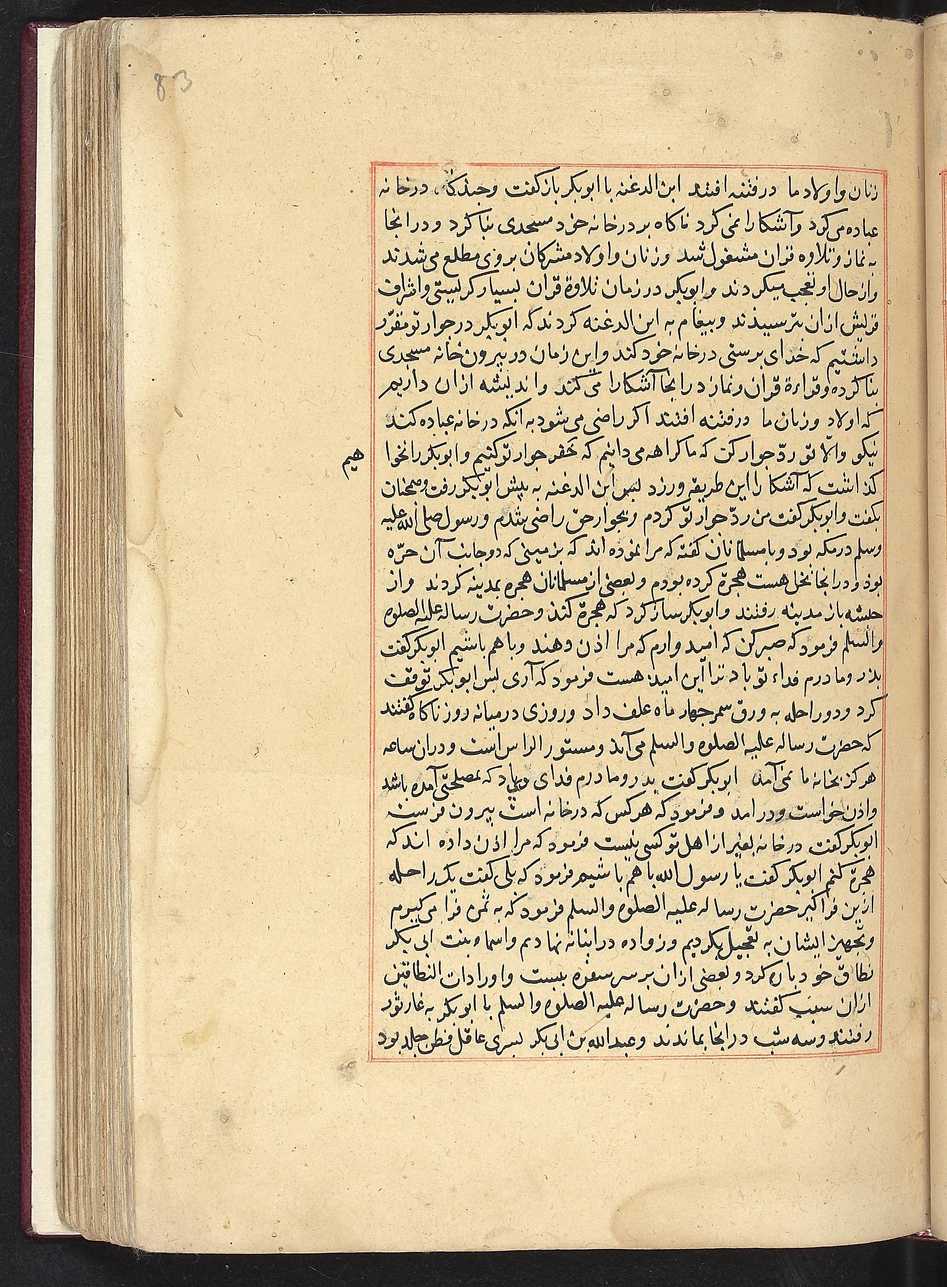 83
زنان و اولاد ما در فتنه افتند ابن الدغنه با ابوبکر باز کفت و چندکاه در خانه
عباده می کرد و آشکارا نمی کرد ناکاه بر در خانه خود مسجدی بنا کرد و در انجا
به نماز و تلاوه قران مشغول شد و زنان و اولاد مشرکان بر وی مطلع می شدند
و از حال او تعجب میکردند و ابوبکر در زمان تلاوة قران بسیار کریستی و اشراف
قریش ازان بترسیدند و پیغام به ابن الدغنه کردند که ابوبکر در جوار تو مقرّر
داشتیم که خدای پرستی در خانه خود کند و این زمان در بیرون خانه مسجدی
بنا کرده و قراءة قران و نماز در انجا آشکارا می کند و اندیشه ازان داریم
که اولاد و زنان ما در فتنه افتند اکر راضی می شود به آنکه در خانه عباده کند
نیکو والّا تو ردّ جوار کن که ما کراهه می دانیم که خفر جوار تو کنیم و ابوبکر را نخوا
هیم
کذاشت که آشکارا این طریقه ورزد پس ابن الدغنه به پیش ابوبکر رفت و سخنان
بکفت و ابوبکر کفت من ردّ جوار تو کردم و بجوار حق راضی شدم و رسول صلی الله علیه
وسلم در مکه بود و با مسلمانان کفته که مرا نموده اند که بزمینی که دو جانب آن حرّه
بود و در انجا نخل هست هجرة کرده بودم و بعضی از مسلمانان هجره بمدینه کردند و از
حبشه باز مدینه رفتند و ابوبکر ساز کرد که هجرة کند و حضرت رساله علیه الصلوه
والسلم فرمود که صبر کن که امید وارم که مرا اذن دهند و با هم باشیم ابوبکر کفت
پدر و مادرم فداء تو باد ترا این امید هست فرمود که آری پس ابوبکر توقف
کرد و دو راحله به ورق سمر چهار ماه علف داد و روزی در میانه روز ناکاه کفتند
که حضرت رساله علیه الصلوه والسلم می آید و مستور الراس است و دران ساعه
هرکز بخانه ما نمی آمد ابوبکر کفت پدر و مادرم فدای وی باد که بمصلحتی آمده باشد
و اذن خواست و در امد و فرمود که هر کس که در خانه است بیرون فرست
ابوبکر کفت در خانه بغیر از اهل تو کسی نیست فرمود که مرا اذن داده اند که
هجرة کنم ابوبکر کفت یا رسول الله با هم باشیم فرمود که بلی کفت یک راحله
ازین فرا کیر حضرت رساله علیه الصلوه والسلم فرمود که به ثمن فرا می کیرم
و تجهیز ایشان به تعجیل بکردیم و زواده در انبانه نهادیم و اسماء بنت ابی بکر
نطاق خود پاره کرد و بعضی ازان بر سر سفره ببست و او را ذات النطاقین
ازان سبب کفتند و حضرت رساله علیه الصلوه والسلم با ابوبکر به غار ثور
رفتند و سه شب در انجا بماندند و عبدالله بن ابی بکر پسری عاقل فطن جلد بود